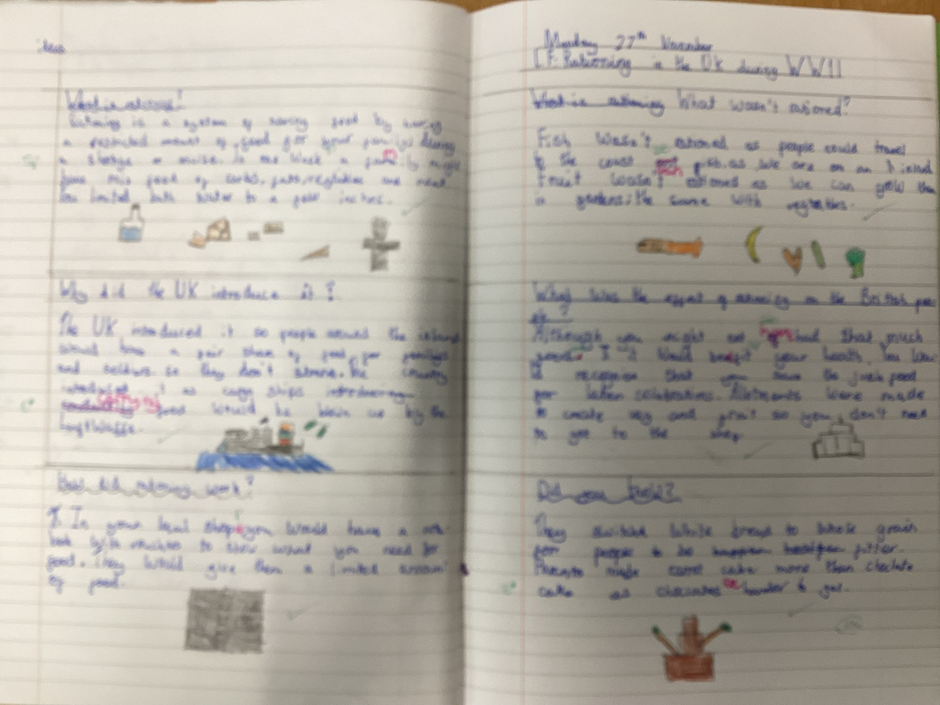 What is rationing?
Rationing is a system of saving food by having
a restricted amount of food for your family during
a shortage or crisis. In one week a family might
have this food of carbs, fats, vegtables and meat
limited bath water to a few inches.
Why did the UK introduce it?
The UK introduced it so people around the island
would have a fair share of food for families
and soldiers so they don't starve. The country
it as cargo ships
food would be blown up by the
Luftwaffe.
How did rationing work?
In your local shop you would have a
book with vouches to show what you need for
food. They would give them a limited amount
of food.
Monday 27th November
LF: Rationing in the UK during WWII
What is rationing What wasn't rationed?
Fish wasn't rationed as people could travel
to the coast fish as we are on an island
Fruit wasn't rationed as we can grow them
in gardens; the same with vegtables.
What was the effect of rationing on the British peo
ple?
Although you might not had that much
it would your health. You
that you save the food
for later celebrations. Allotments were made
to create veg and fruit so you don't need
to go to the shop
Did you know?
They switched white bread to whole grain
for people to be happier fitter.
made carrot cake more than choclate
cake as harder to get.